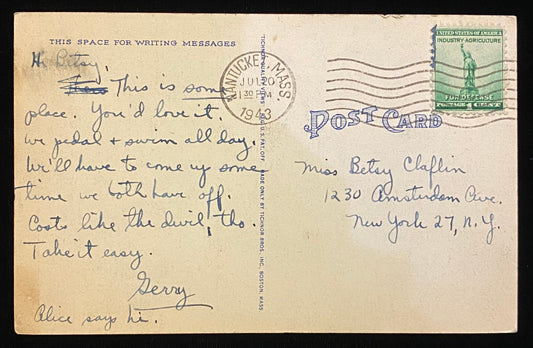 THIS SPACE FOR WRITING MESSAGES
Hi Betsy,
This is some
place. You'd love it.
We pedal + swim all day.
We'll have to come up some
time we both have off.
Costs like the devil, tho.
Take it easy.
Gerry
Alice says hi.
TICHNOR QUALITY VIEWS REG. U.S. PAT. OFF. MADE ONLY BY TICHNOR BROS., INC., BOSTON, MASS.
NANTUCKET, MASS.
JUL 20
1 30 PM
1943
UNITED STATES OF AMERICA
INDUSTRY-AGRICULTURE
FOR DEFENSE
POST CARD
Miss Betsy Claflin
1230 Amsterdam Ave.
New York 27, N.Y.